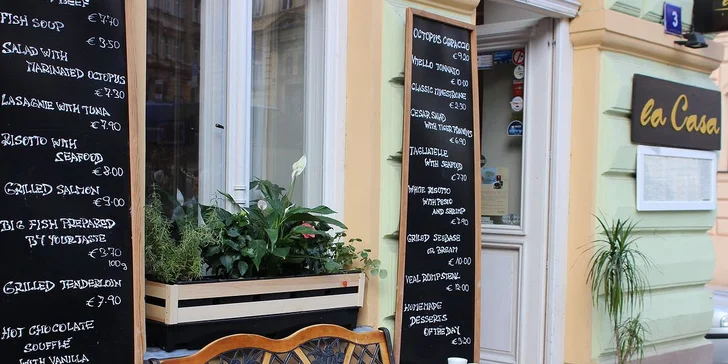 FISH SOUP €7.40
€3.50
SALAD WITH
MARINATED OCTOPUS
€7.30
LASAGNIE WITH TUNA
€7.90
RISOTTO WITH
SEAFOOD
€8.00
GRILLED SALMON
€9.00
BIG FISH PREPARED
BY YOUR TASTE
€3.70
100g
GRILLED TENDERLOIN
€7.90
HOT CHOCOLATE
SOUFFLÉ
WITH VANILLA
OCTOPUS CARPACCIO
€9.20
VITELLO TONNATO
€10.00
CLASSIC MINESTRONE
€2.30
CESAR SALAD
WITH TIGER PRAWNS
€6.90
TAGLIATELLE
WITH SEAFOOD
€7.70
WHITE RISOTTO
WITH PESTO
AND SHRIMP
€7.90
GRILLED SEABASE
OR BREAM
€10.00
VEAL RUMPSTEAK
€12.00
HOMEMADE
DESSERTS
OF THE DAY
€3.20
3
la Casa